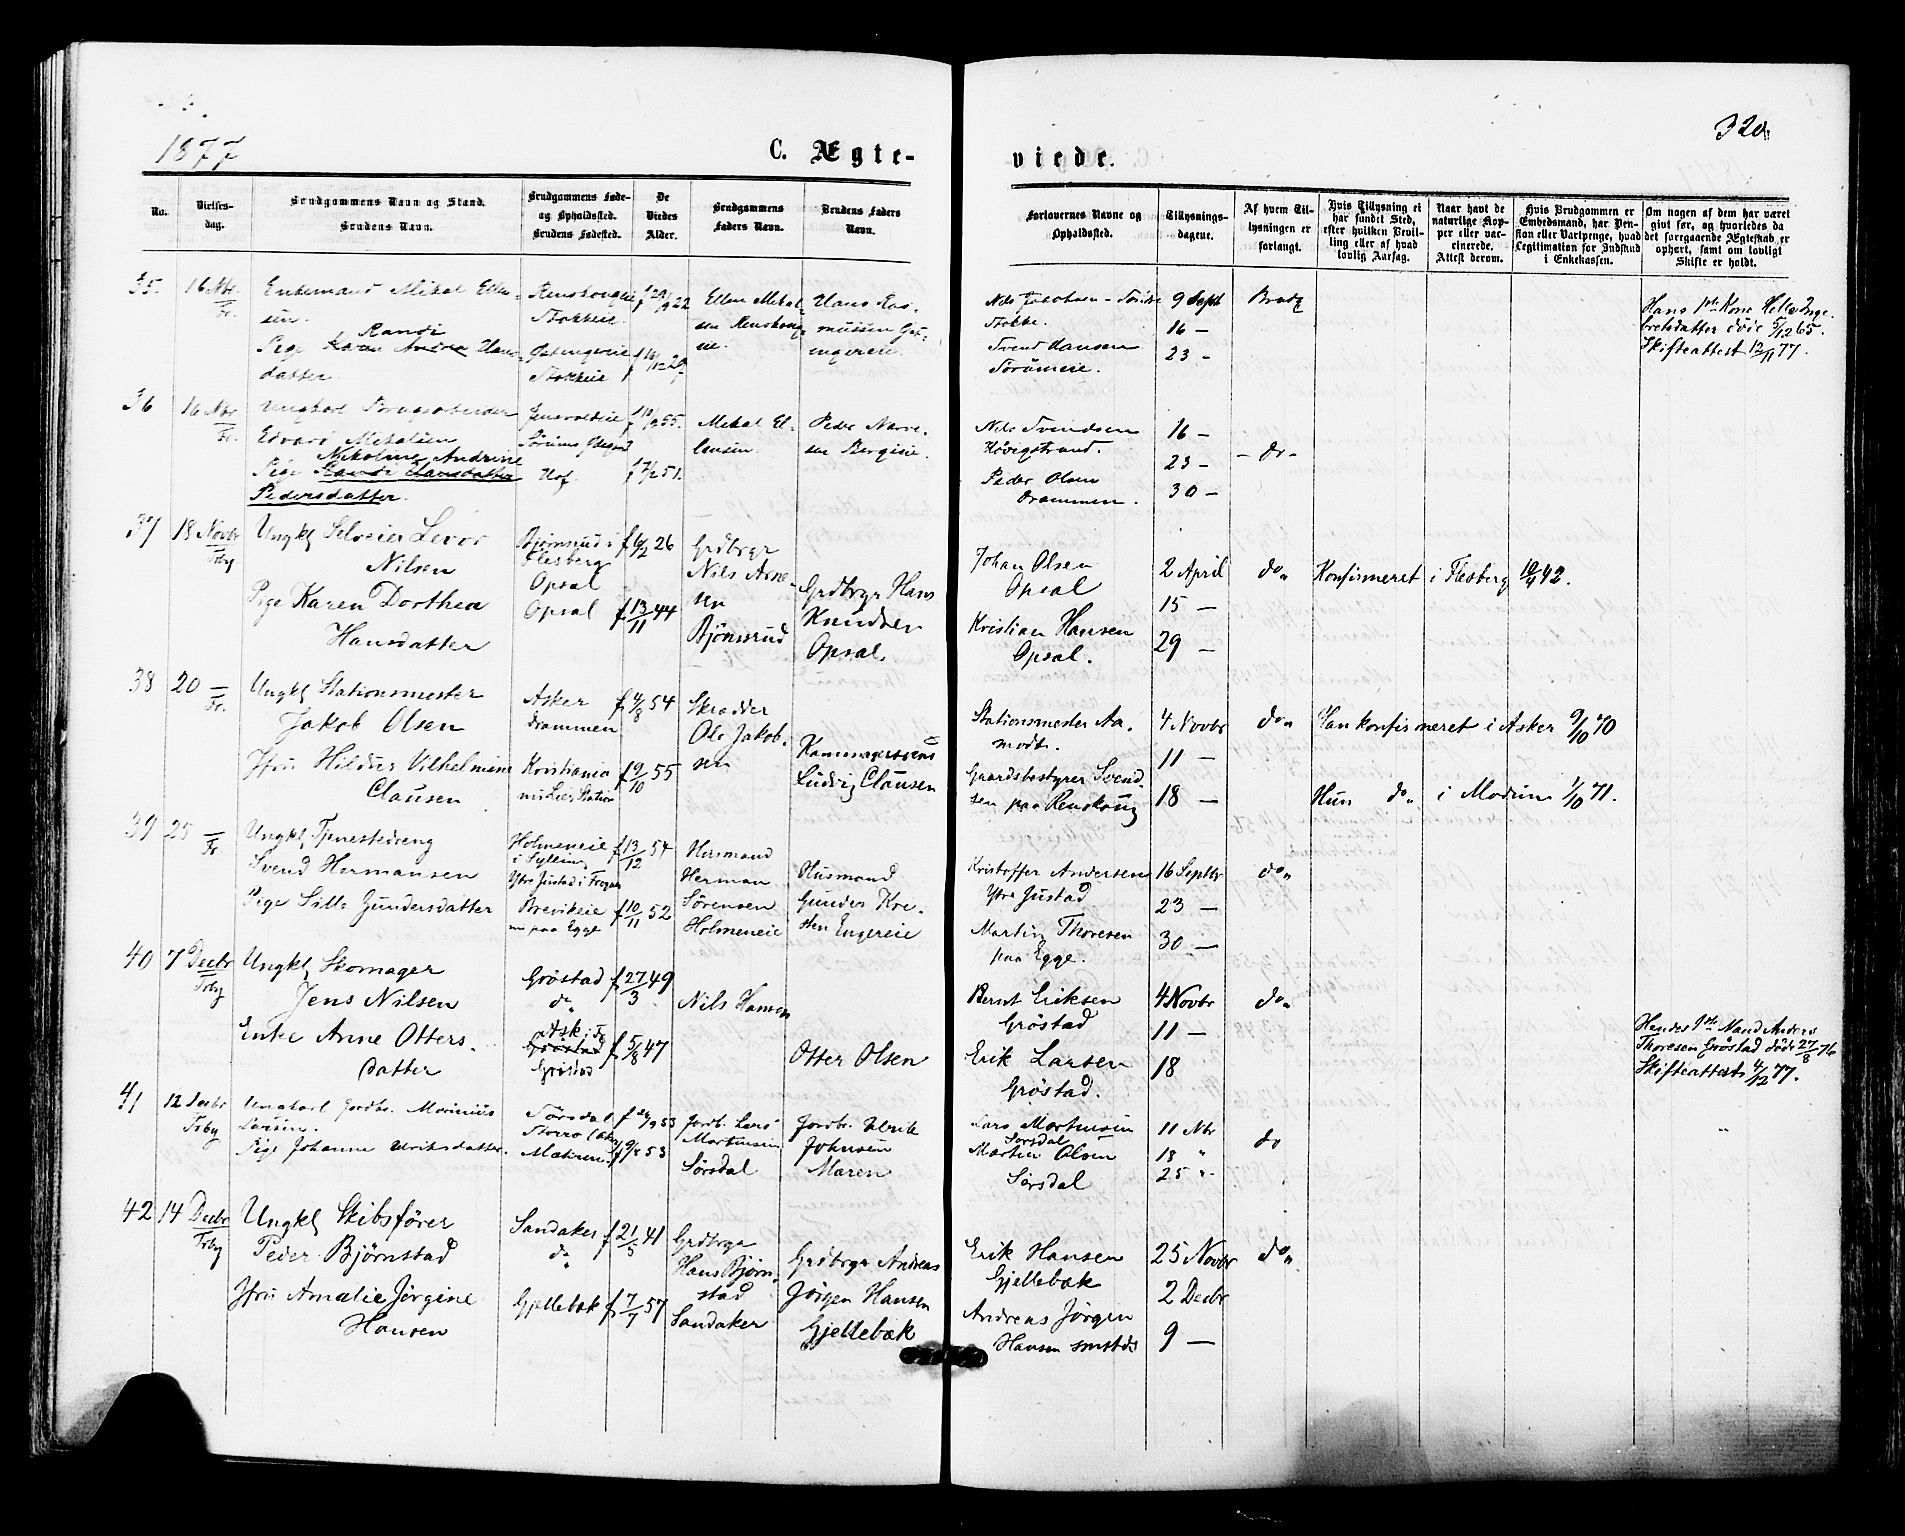 1877
C. Ægte-
No.
Vielses-
dag.
Brudgommens Navn og Stand.
Brudens Navn.
Brudgommens Føde-
og Opholdssted.
Brudens Fødested.
De
Viedes
Alder.
Brudgommens
Faders Navn.
Brudens Faders
Navn.
35.
16 Nbr.
Fr.
Enkemand Mikal Ellen-
sen.
Randi
Pige Karen Andrea Hans-
datter
Renskougeie
Stokkeie.
Stokkeie
Ellen Mikal-
sen Renskoug-
eie.
Hans Ras-
mussen
36
16 Nbr
Fr.
Ungkarl Brugsarbeider
Edvard Mikalsen
Nikoline Andrine
Pige Randi Hansdatter
Pedersdatter.
Hof.
f 10/9 55.
f 7/2 51.
Mikal El-
lensen.
Peder Narve-
sen Bergseie.
37
18 Novbr
Trby
Ungkl Selveier Levor
Nilsen
Pige Karen Dorthea
Hansdatter
Bjørnsrud i
Flesberg
Opsal
Opsal
f 16/2 26
f 13/11 44
Grdbrgr
Nils Arne-
sen
Bjørnsrud
Grdbrgr Hans
Knudsen
Opsal.
38
20 —
Fr.
Ungkl Stationsmester
Jakob Olsen
Jfru Hildur Vilhelmine
Clausen
Asker
Drammen
Kristiania
nu Lier Station
f 4/8 54
f 9/10 55
Skrædder
Ole Jakob-
sen
Kammagersvend
Ludvig Clausen
39
25 —
Fr.
Ungkl Tjenestedreng
Svend Hermansen
Pige Sille Gundersdatter
Holmeneie
i Sylling
Ytre Justad i Frogner
Brevikeie
nu paa Egge
f 13/12 54
f 10/11 52
Husmand
Herman
Sørensen
Holmeneie
Husmand
Gunder Kre-
sten Engereie
40
7 Decbr
Trby
Ungkl Skomager
Jens Nilsen
Enke Anne Otters-
datter
Grøstad
do
Ask i
Grøstad
Grøstad
f 27/3 49
f 5/8 47
Nils Hansen
Otter Olsen
41
12 Decbr
Trby
Ungkarl Gordbr. Marinius
Larsen.
Pige Johanne Ulriksdatter.
Sørsdal
Gordb. Lars
Mortensen
Sørsdal
Gordbr. Ulrik
Johnsen
Maren
42
14 Decbr
Trby
Ungkl Skibsfører
Peder Bjørnstad
Jfru Amalie Jørgine
Hansen
Sandaker
do
Gjellebæk
f 21/5 41
f 7/7 57
Grdbrgr
Hans Bjørn-
stad
Sandaker
Grdbrgr Andreas
Jørgen Hansen
Gjellebæk
320.
viede.
Forlovernes Navne og
Opholdssted.
Tillysnings-
dagene.
Af hvem Til-
lysningen er
forlangt.
Hvis Tillysning ei
har fundet Sted,
efter hvilken Bevil-
ling eller af hvad
lovlig Aarsag.
Naar havt de
naturlige Kop-
per eller vac-
cinerede.
Attest derom.
Hvis Brudgommen er
Embedsmand, har Pen-
sion eller Vartpenge, hvad
Legitimation for Indskud
i Enkekassen.
Om nogen af dem har været
givt før, og hvorledes da
det foregaaende Ægteskab er
ophørt, samt om lovligt
Skifte er holdt.
Stokke.
Svend Hansen
9 Sept
16 —
23 —
Brudg
Hans 1ste Kone Helle Inge-
bretsdatter døde 5/12 65.
Skifteattest 12/11 77.
Nils Svendsen
Høvigstrand.
Peder Olsen
Drammen.
16 —
23 —
30 —
— do —
Johan Olsen
Opsal
Kristian Hansen
Opsal.
2 April
15 —
29 —
do
Konfirmeret i Flesberg 10/4 42.
Stationsmester Aa-
modt.
Gaardsbestyrer Svend-
sen paa Renskoug
4 Novbr
11 —
18 —
do
Han konfirmeret i Asker 9/10 70
Hun do i Modum 1/10 71.
Kristoffer Andersen
Ytre Justad
Martin Thoresen
paa Egge.
16 Septbr
23 —
30 —
do
Bernt Eriksen
Grøstad
Erik Larsen
Grøstad.
4 Novbr
11 —
18
do
Hendes 1ste Mand Anders
Thoresen Grøstad døde 27/8 76
Skifteattest 4/12 77.
Lars Mortensen
Sørsdal
Martin Olsen
Sørsdal
11 Nbr
18 "
25 "
do
Erik Hansen
Gjellebæk
Andreas Jørgen
Hansen smstds
25 Novbr
2 Decbr
9 —
do